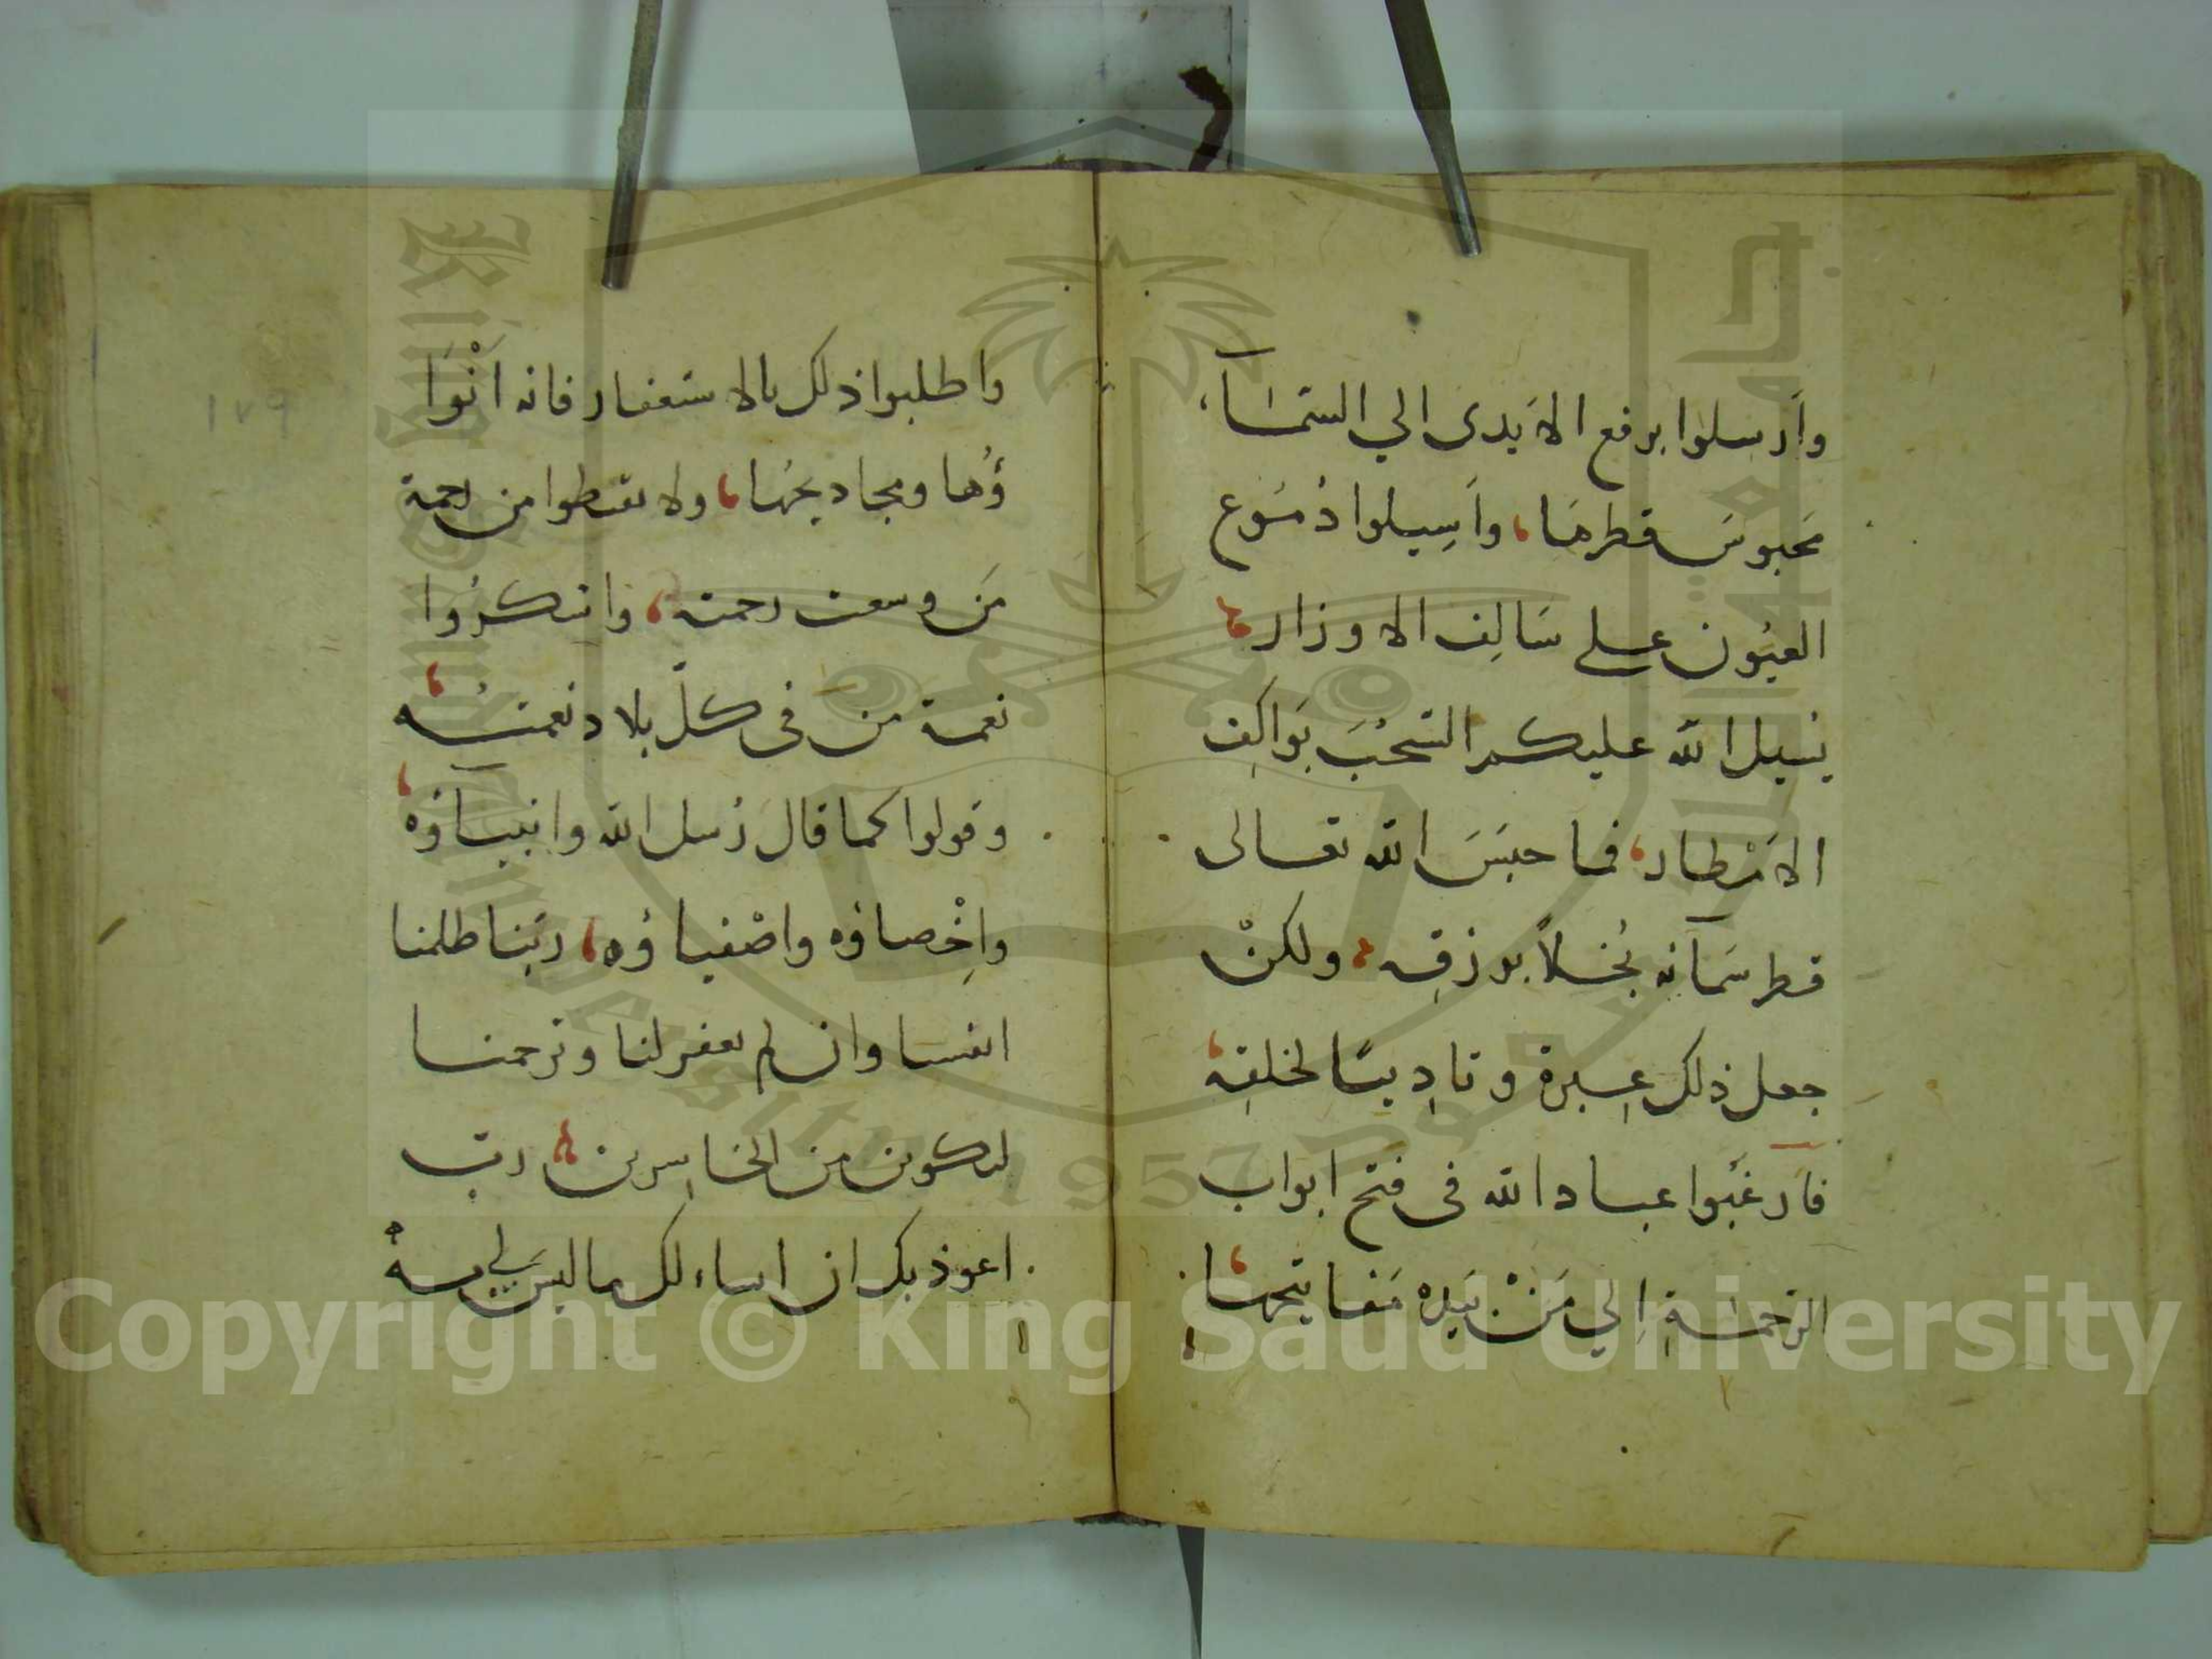 وأرسلوا برفع الأيدى الي السمآء
محبوسَ قطرها، وأَسِيلوا دُموع
العيُون على سَالِف الاوزار،
يُسيل الله عليكم السُّحُبَ بَواكِف
الأمْطار، فما حبَسَ الله تعالى
قطر سَمآئه بُخلاً برزقِه، ولكنْ
جعل ذلك عِبرة وتادِيبًا لخلقِه،
فارغَبُوا عباد الله فى فتح ابواب
الرحمةِ إلي مَنْ بيَدِه مَفاتِحها،
١٧٩
واطلبوا ذلك بالاستغفار فانه أنْوَا
ؤُها ومجاديحُها، ولا تقنطوا من رحمة
مَن وسعت رحمته، واشكرُوا
نعمة من فى كلّ بلاد نعمتُه،
وقولوا كما قال رُسل الله وانبيآؤه،
واخْصاؤه واصْفياؤُه، ربَّنا ظلمنا
انفسنا وان لم تغفر لنا وترحمنا
لنكونن من الخاسِرين، ربّ
اعوذ بك ان اساءلك ما ليسَ لي به
جامعة الملك سعود
King Saud University
1957
Copyright © King Saud University